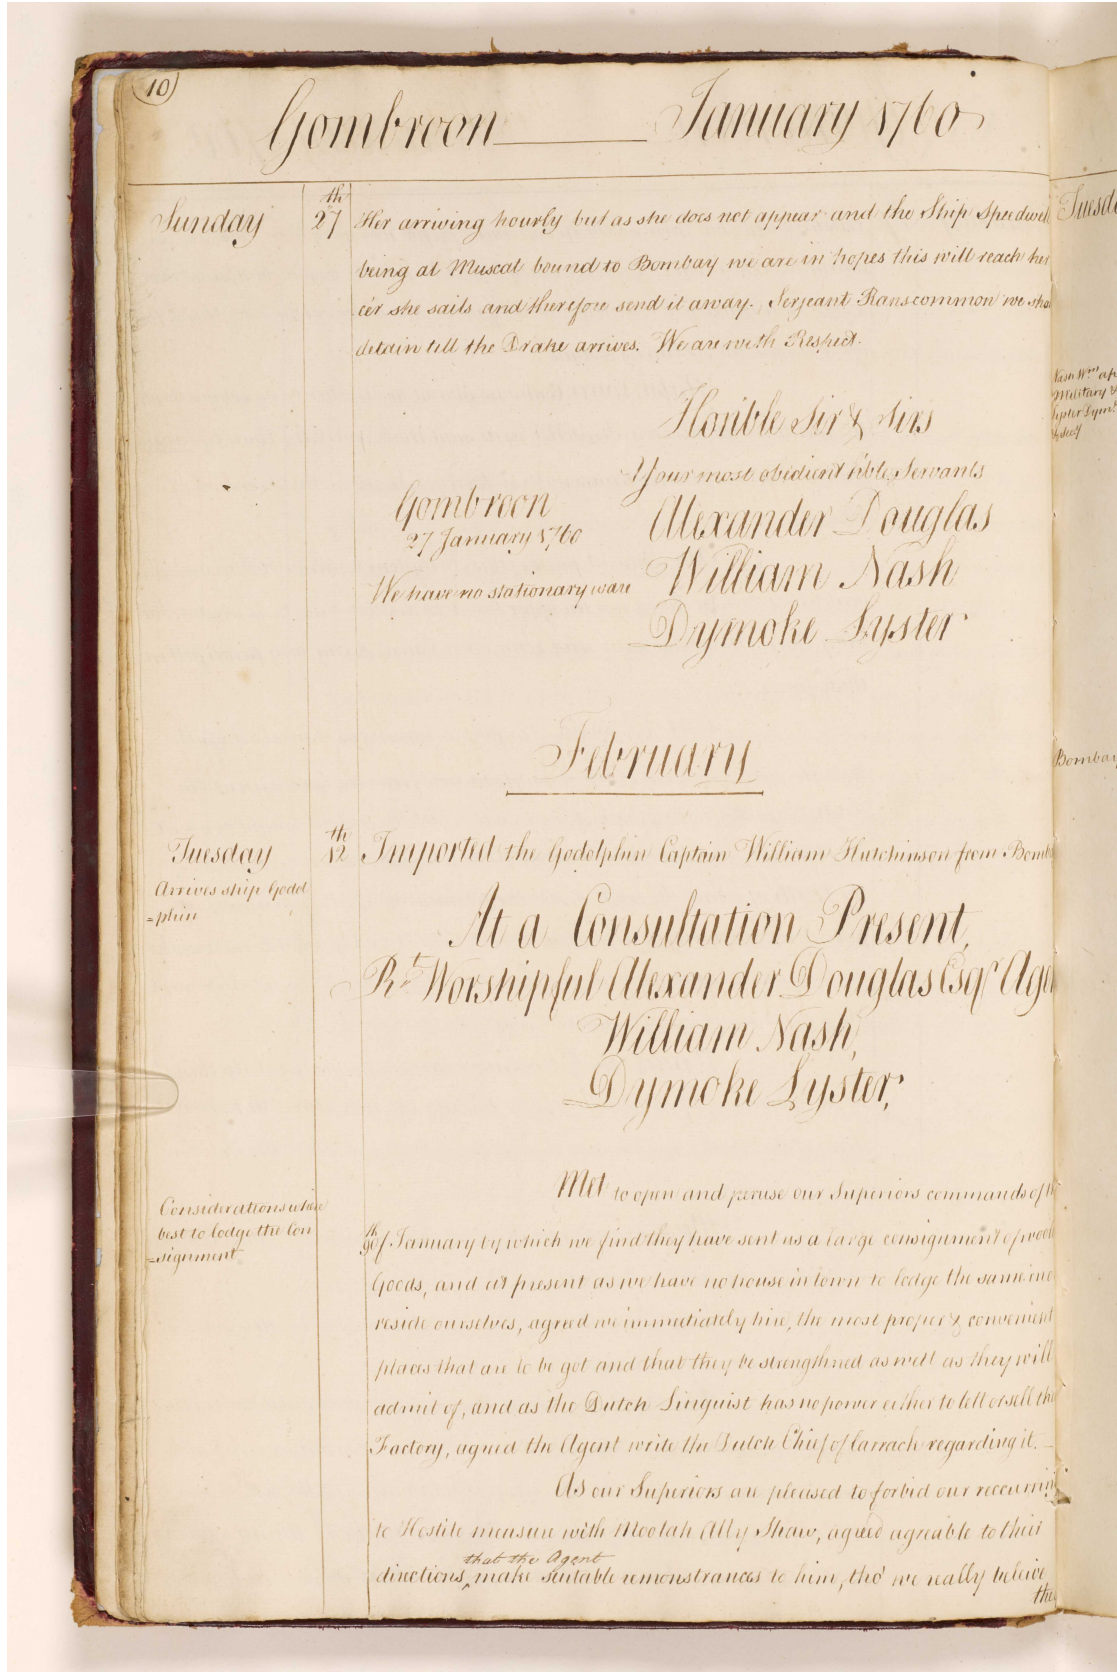 10
Gombroon January 1760
Sunday 27th Her arriving hourly but as she does not appear and the Ship Speedwell
being at Muscat bound to Bombay we are in hopes this will reach her
e'er she sails and therefore send it away. Serjeant Ranscommon we sha
detain till the Drake arrives. We are with Respect.
Honble Sir & Sirs
Your most obedient hble Servants
Gombroon
27 January 1760
Alexander Douglas
We have no stationary ware
William Nash
Dymoke Lyster
February
Tuesday 12th Imported the Godolphin Captain William Hutchinson from Bomb
Arrives ship Godol
=phin
At a Consultation Present,
Rt Worshipful Alexander Douglas Esqr Age
William Nash,
Dymoke Lyster,
Considerations where
best to lodge the Con
=signment
Met to open and peruse our Superiors commands of
9th of January by which we find they have sent us a large consignment of
Goods, and at present as we have no house in town to lodge the same in
reside ourselves, agreed we immediately hire, the most proper & convenient
places that are to be got and that they be strengthned as well as they will
admit of, and as the Dutch Linguist has no power either to lett or sell the
Factory, agreed the Agent write the Dutch Chief of Carrack regarding it.
As our Superiors are pleased to forbid our recurring
to Hostile measure with Moolah Ally Shaw, agreed agreable to their
directions, that the Agent make suitable remonstrances to him, tho' we really beleive
the
Tuesd
Nash Wm ap
Military &
Lyster Dym.
Secy
Bombay